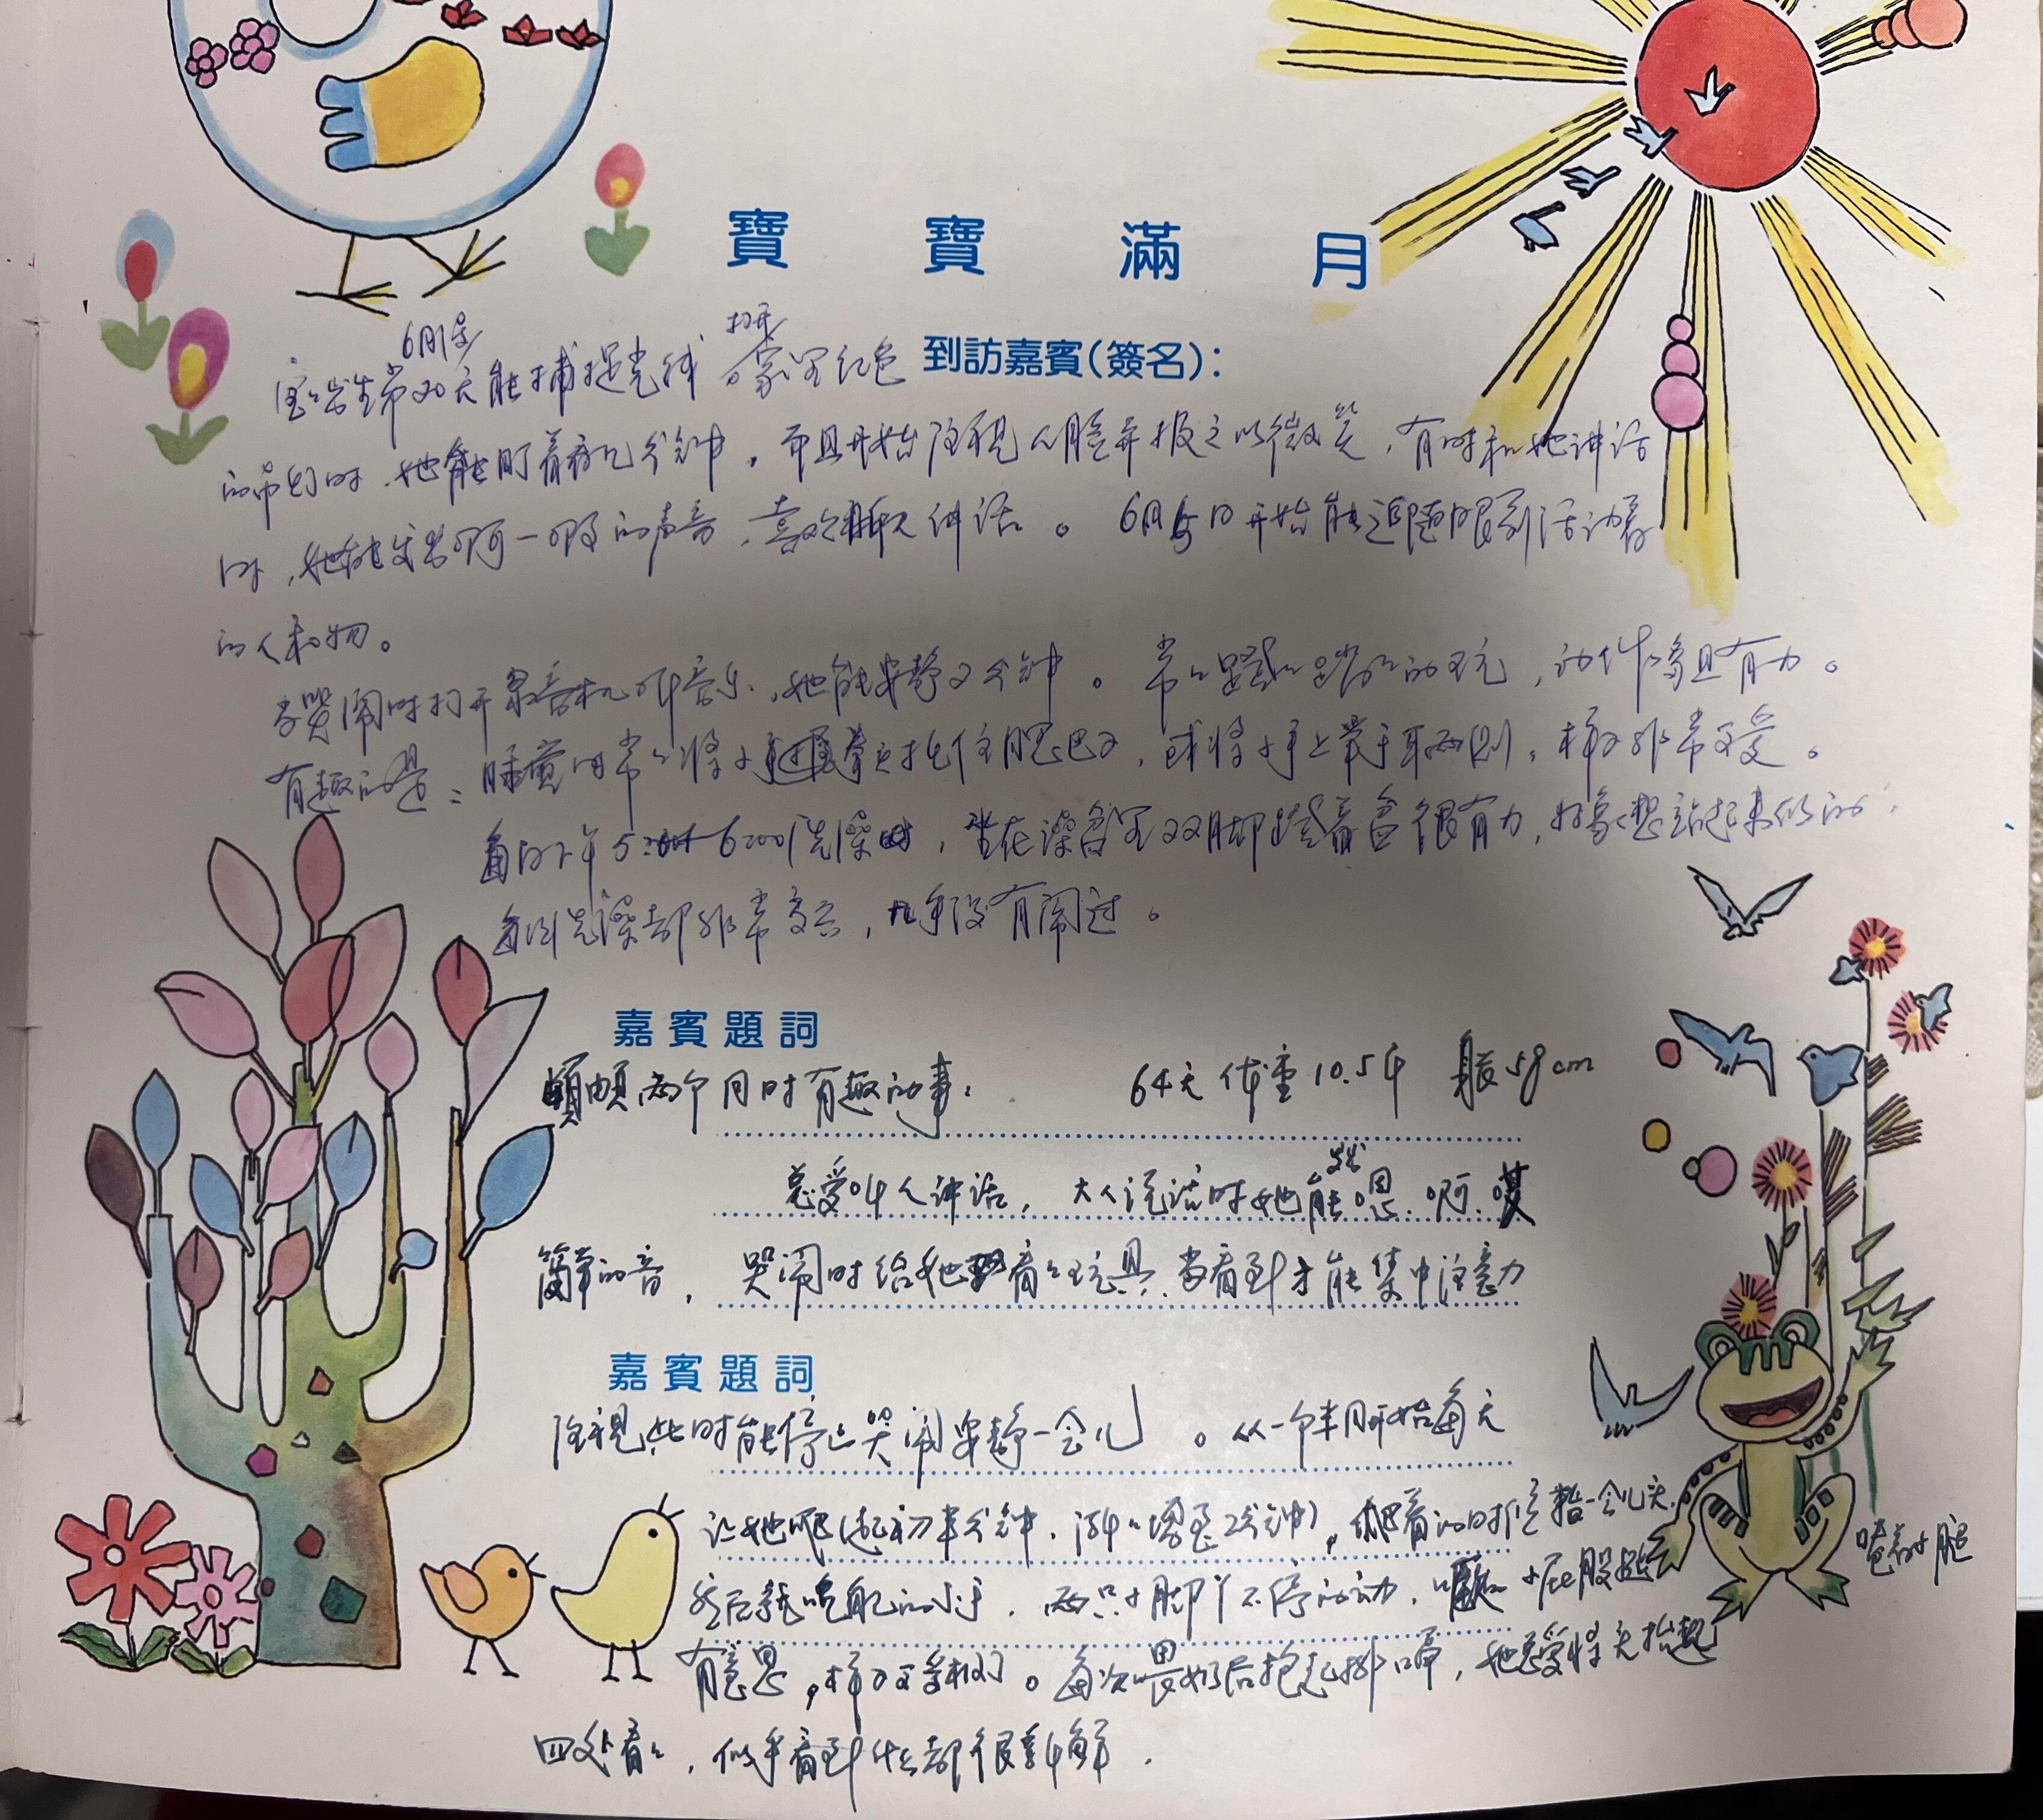 寶寶滿月
到訪嘉賓(簽名):
6月1号
宝宝出生第20天能捕捉光线 打开 家里红色
的吊灯时,她能盯着看几分钟,而且开始注视人脸并报之以微笑,有时和她讲话
时,她能发出啊一啊的声音,喜欢聊天讲话。6月5日开始能追随眼前活动着
的人和物。
当哭闹时打开录音机听音乐,她能安静几分钟。常常蹬蹬踹踹的玩,动作多且有力。
有趣的是:睡觉时常常将小手握拳头托住腮巴子,或将小手上举于耳两侧,样子非常可爱。
每日下午5:00—6:00洗澡时,坐在澡盆里双脚蹬着盆很有力,好象想站起来似的
每次洗澡都非常高兴,几乎没有闹过。
嘉賓題詞
頔頔两个月时有趣的事: 64天 体重10.5斤 身长58cm
总爱叫人讲话,大人说话时她能发嗯.啊.哎
简单的音,哭闹时给她看看玩具,当看到才能集中注意力
嘉賓題詞
注视,此时能停止哭闹安静一会儿。从一个半月开始每天
让她爬(起初半分钟,渐渐增至2分钟),爬着的时候抬一会儿头,
然后就啃自己的小手,两只小脚丫不停的动,小屁股
蹬着小腿
有意思,样子可爱极了。每次喂奶后抱起排嗝,她总爱将头抬起
四处看看,似乎看到什么都很新鲜.